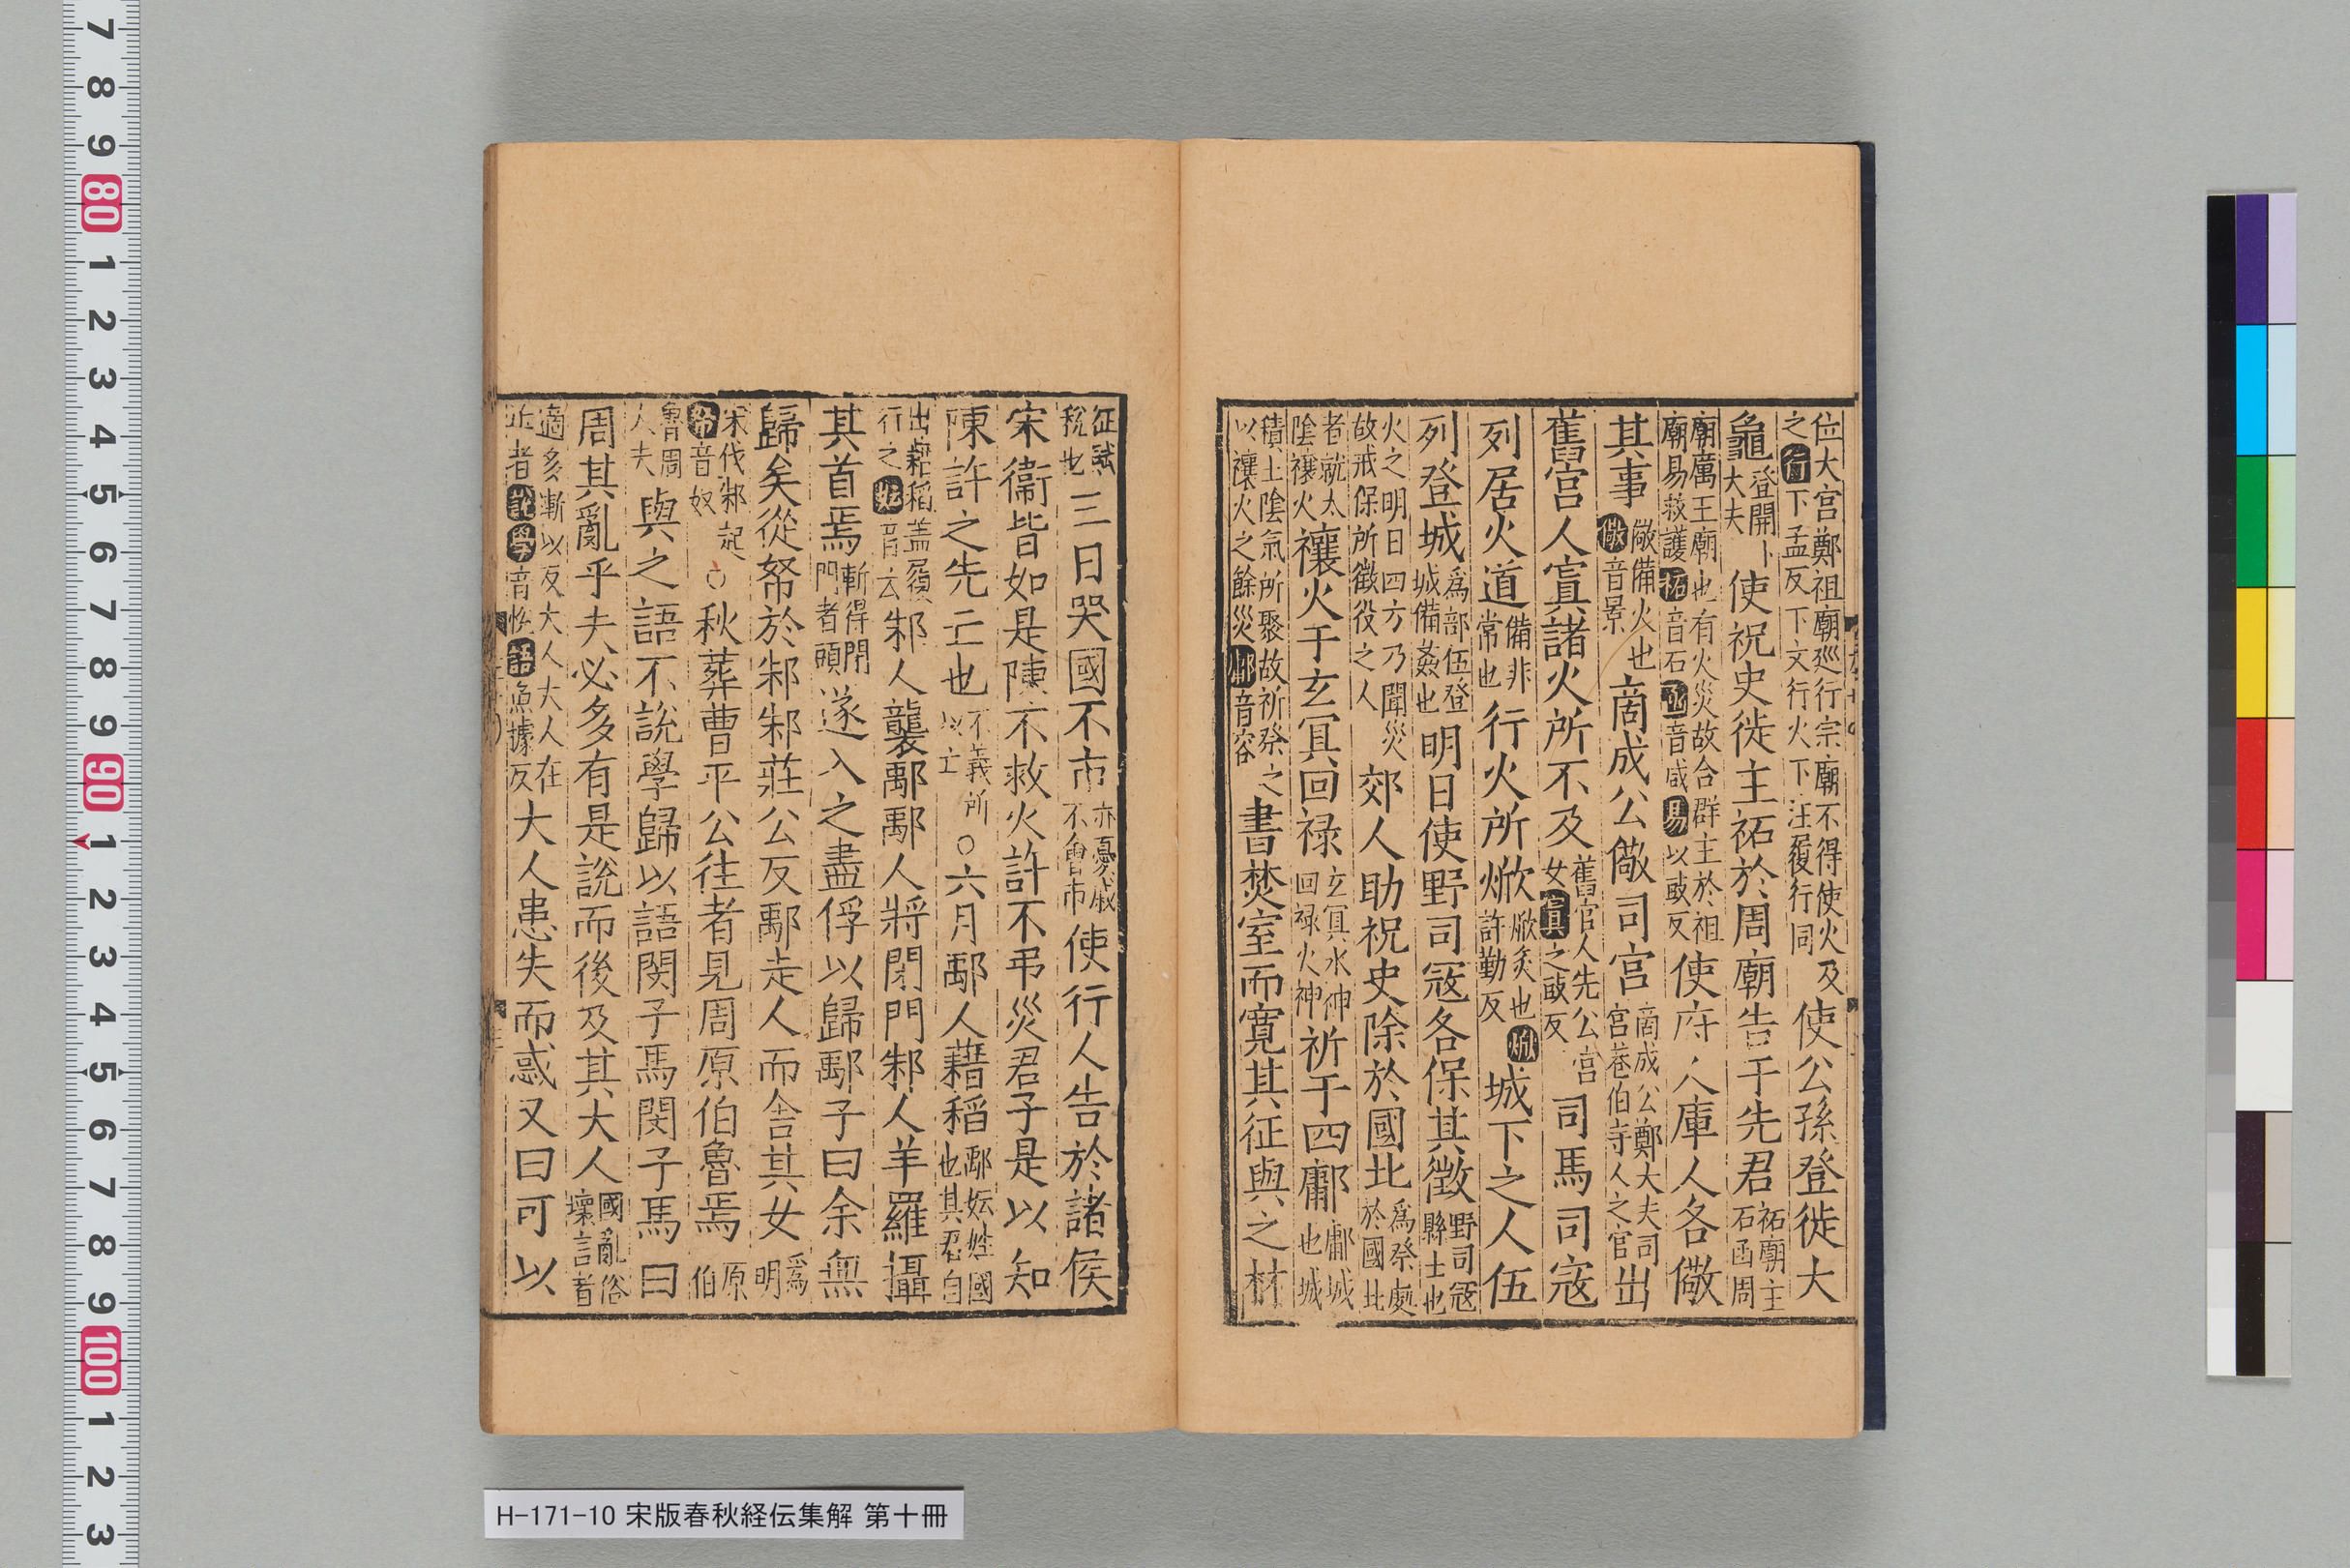 位大宮鄭祖廟巡行宗廟不得使火及之行下孟反下文行火下注履行同使公孫登徙大
龜登開卜大夫使祝史徙主祏於周廟告于先君祏廟主石函周
廟厲王廟也有火災故合群主於祖廟易救護祏音石函音咸易以豉反使府人庫人各儆
其事儆備火也儆音景商成公儆司宮商成公鄭大夫司宮巷伯寺人之官出
舊宮人寘諸火所不及舊宮人先公宮女寘之豉反司馬司寇
列居火道備非常也行火所焮焮炙也焮許勤反城下之人伍
列登城為部伍登城備姦也明日使野司寇各保其徵野司寇縣士也
火之明日四方乃聞災故戒保所徵役之人郊人助祝史除於國北為祭處於國北
者就太陰禳火禳火于玄冥回祿玄冥水神回祿火神祈于四鄘鄘城也城
積土陰氣所聚故祈祭之以禳火之餘災鄘音容書焚室而寬其征與之材
征賦稅也三日哭國不市亦憂戚不會市使行人告於諸侯
宋衛皆如是陳不救火許不弔災君子是以知
陳許之先亡也不義所以亡○六月鄅人藉稻鄅妘姓國也其君自
出藉稻蓋履行之妘音云邾人襲鄅鄅人將閉門邾人羊羅攝
其首焉斬得閉門者頭遂入之盡俘以歸鄅子曰余無
歸矣從帑於邾邾莊公反鄅夫人而舍其女為明
宋伐邾起帑音奴○秋葬曹平公往者見周原伯魯焉原伯
魯周大夫與之語不說學歸以語閔子馬閔子馬曰
周其亂乎夫必多有是說而後及其大人國亂俗壞言者
適多漸以及大人大人在位者說學音悅語魚據反大人患失而惑又曰可以
H-171-10 宋版春秋経伝集解 第十冊
7 8 9 80 1 2 3 4 5 6 7 8 9 90 1 2 3 4 5 6 7 8 9 100 1 2 3